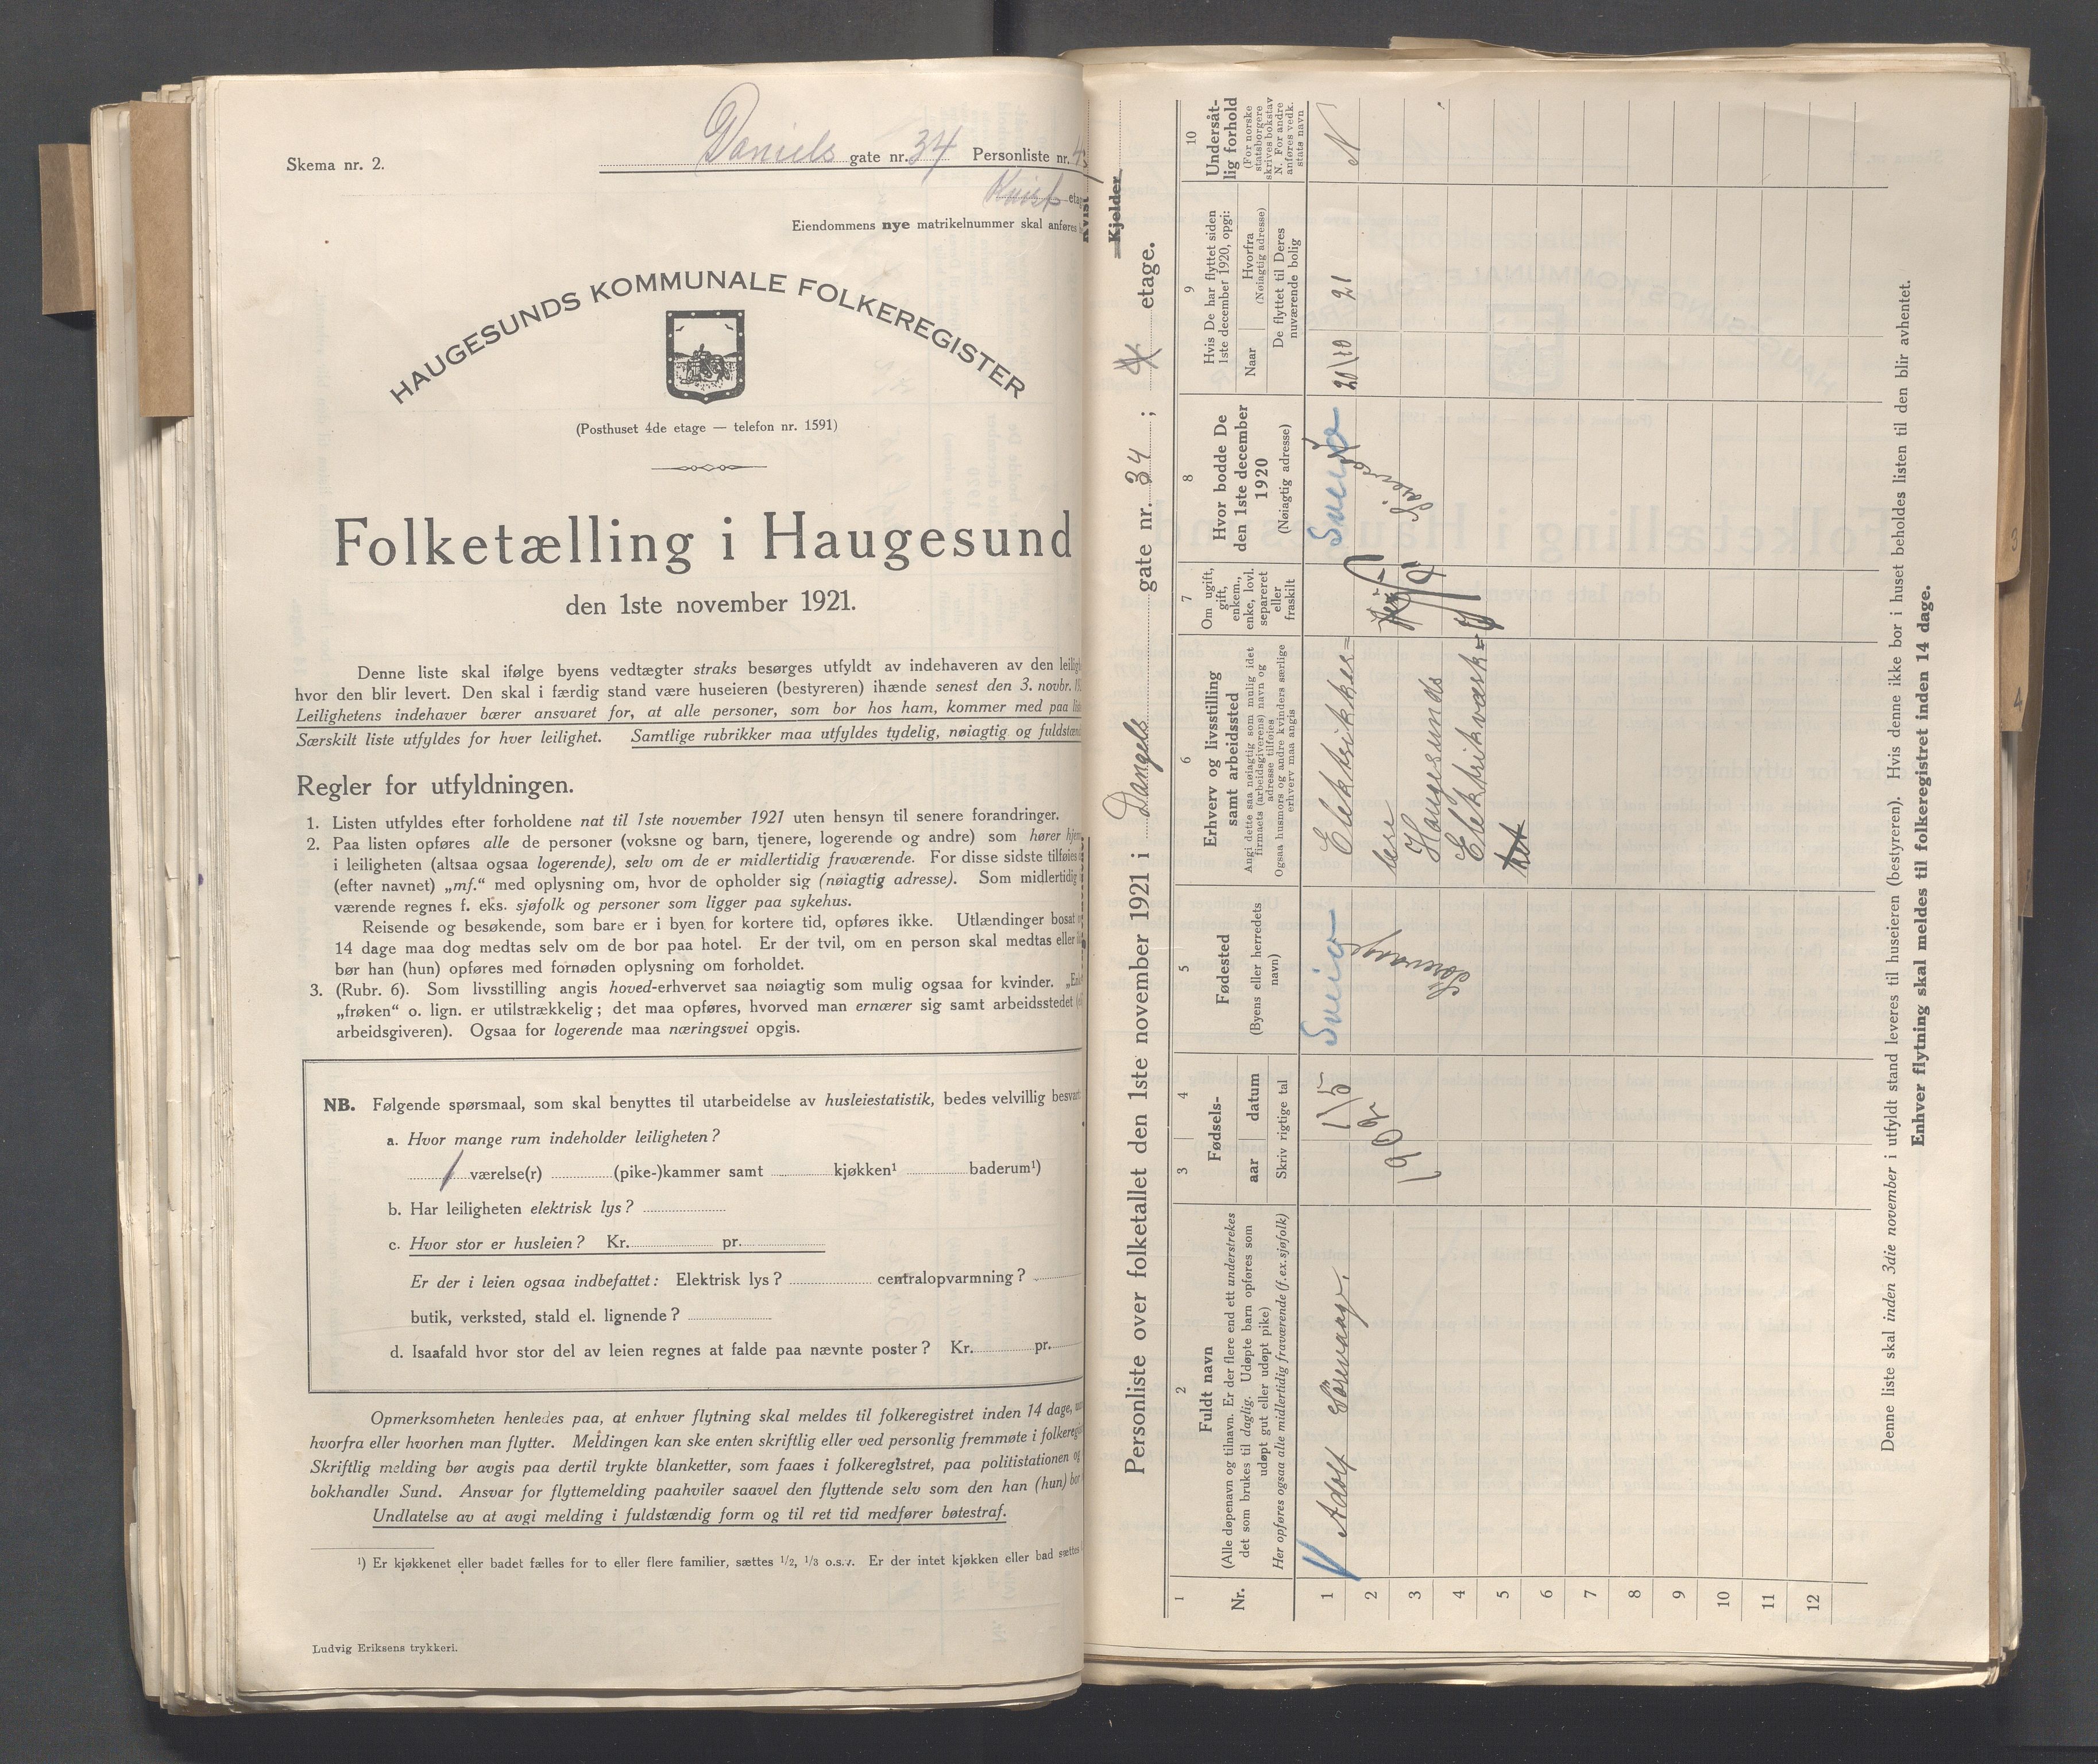 Skema nr. 2.
Daniels gate nr. 34 Personliste nr. 4
Kvist etag
Eiendommens nye matrikelnummer skal anføres
HAUGESUNDS KOMMUNALE FOLKEREGISTER
(Posthuset 4de etage — telefon nr. 1591)
Folketælling i Haugesund
den 1ste november 1921.
Denne liste skal ifølge byens vedtægter straks besørges utfyldt av indehaveren av den leilig
hvor den blir levert. Den skal i færdig stand være huseieren (bestyreren) ihænde senest den 3. novbr.
Leilighetens indehaver bærer ansvaret for, at alle personer, som bor hos ham, kommer med paa
Særskilt liste utfyldes for hver leilighet. Samtlige rubrikker maa utfyldes tydelig, nøiagtig og fuldstænd
Regler for utfyldningen.
1. Listen utfyldes efter forholdene nat til 1ste november 1921 uten hensyn til senere forandringer.
2. Paa listen opføres alle de personer (voksne og barn, tjenere, logerende og andre) som hører hjem
i leiligheten (altsaa ogsaa logerende), selv om de er midlertidig fraværende. For disse sidste tilføies
(efter navnet) „mf.“ med oplysning om, hvor de opholder sig (nøiagtig adresse). Som midlertidig
værende regnes f. eks. sjøfolk og personer som ligger paa sykehus.
Reisende og besøkende, som bare er i byen for kortere tid, opføres ikke. Utlændinger bosat
14 dage maa dog medtas selv om de bor paa hotel. Er der tvil, om en person skal medtas eller
bør han (hun) opføres med fornøden oplysning om forholdet.
3. (Rubr. 6). Som livsstilling angis hoved-erhvervet saa nøiagtig som mulig ogsaa for kvinder. „Enk
„frøken“ o. lign. er utilstrækkelig; det maa opføres, hvorved man ernærer sig samt arbeidsstedet
arbeidsgiveren). Ogsaa for logerende maa næringsvei opgis.
NB. Følgende spørsmaal, som skal benyttes til utarbeidelse av husleiestatistik, bedes velvillig besvart
a. Hvor mange rum indeholder leiligheten?
1 værelse(r) (pike-)kammer samt kjøkken¹ baderum¹)
b. Har leiligheten elektrisk lys?
c. Hvor stor er husleien? Kr. pr.
Er der i leien ogsaa indbefattet: Elektrisk lys? centralopvarmning?
butik, verksted, stald el. lignende?
d. Isaafald hvor stor del av leien regnes at falde paa nævnte poster? Kr. pr.
Opmerksomheten henledes paa, at enhver flytning skal meldes til folkeregistret inden 14 dage,
hvorfra eller hvorhen man flytter. Meldingen kan ske enten skriftlig eller ved personlig fremmøte i folkeregis
Skriftlig melding bør avgis paa dertil trykte blanketter, som faaes i folkeregistret, paa politistationen og
bokhandler Sund. Ansvar for flyttemelding paahviler saavel den flyttende selv som den han (hun) bor
Undlatelse av at avgi melding i fuldstændig form og til ret tid medfører bøtestraf.
¹) Er kjøkkenet eller badet fælles for to eller flere familier, sættes 1/2, 1/3 o.s.v. Er der intet kjøkken eller bad sættes
Ludvig Eriksens trykkeri.
Kvist
Kjelder
Personliste over folketallet den 1ste november 1921 i Daniels gate nr. 34 ; etage.
1 2 3 4 5 6 7 8 9 10
Nr.
Fuldt navn
(Alle døpenavn og tilnavn. Er der flere end ett understrekes
det som brukes til daglig. Udøpte barn opføres som
udøpt gut eller udøpt pike)
Her opføres ogsaa alle midlertidig fraværende (f.ex. sjøfolk)
Fødsels-
aar datum
Skriv rigtige tal
Fødested
(Byens eller herredets
navn)
Erhverv og livsstilling
samt arbeidssted
Angi dette saa nøiagtig som mulig idet
firmaets (arbeidsgiverens) navn og
adresse tilføies
Ogsaa husmors og andre kvinders særlige
erhverv maa angis
Om ugift,
gift,
enkem.,
enke, lovl.
separeret
eller
fraskilt
Hvor bodde De
den 1ste december
1920
(Nøiagtig adresse)
Hvis De har flyttet siden
1ste december 1920, opgi:
Naar
Hvorfra
(Nøiagtig adresse)
De flyttet til Deres
nuværende bolig
Undersåt-
lig forhold
(For norske
statsborgere
skrives bokstav
N. For andre
anføres vedk.
stats navn
1 Adolf Sörevaag. 1902 1/5 Sveio Sörevaag Elektrikker= Sveio 20/10 21 N
lære
Haugesunds
Elektrikværk=
ket
2
3
4
5
6
7
8
9
10
11
12
Denne liste skal inden 3die november i utfyldt stand leveres til huseieren (bestyreren). Hvis denne ikke bor i huset beholdes listen til den blir avhentet.
Enhver flytning skal meldes til folkeregistret inden 14 dage.